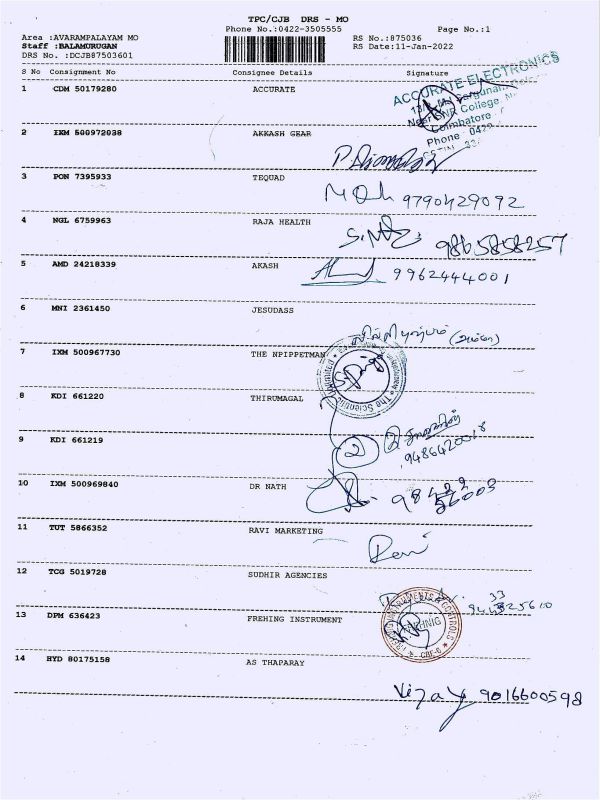 TPC/CJB DRS - MO
Phone No.:0422-3505555 Page No.:1
Area :AVARAMPALAYAM MO RS No.:875036
Staff :BALAMURUGAN RS Date:11-Jan-2022
DRS No. :DCJB87503601
S No Consignment No Consignee Details Signature
1 CDM 50179280 ACCURATE
ACCURATE ELECTRONICS
Near SNR College
Coimbatore
Phone : 0422
2 IXM 500972038 AKKASH GEAR
3 PON 7395933 TEQUAD
9790429092
4 NGL 6759963 RAJA HEALTH
9865858257
5 AMD 24218339 AKASH
9962444001
6 MNI 2361450 JESUDASS
7 IXM 500967730 THE NPIPPETMAN
The Scientific
8 KDI 661220 THIRUMAGAL
9486420018
9 KDI 661219
2
10 IXM 500969840 DR NATH
11 TUT 5866352 RAVI MARKETING
Ravi
12 TCG 5019728 SUDHIR AGENCIES
13 DPM 636423 FREHING INSTRUMENT
INSTRUMENTS & CONTROLS
14 HYD 80175158 AS THAPARAY
Vijay 9016600598